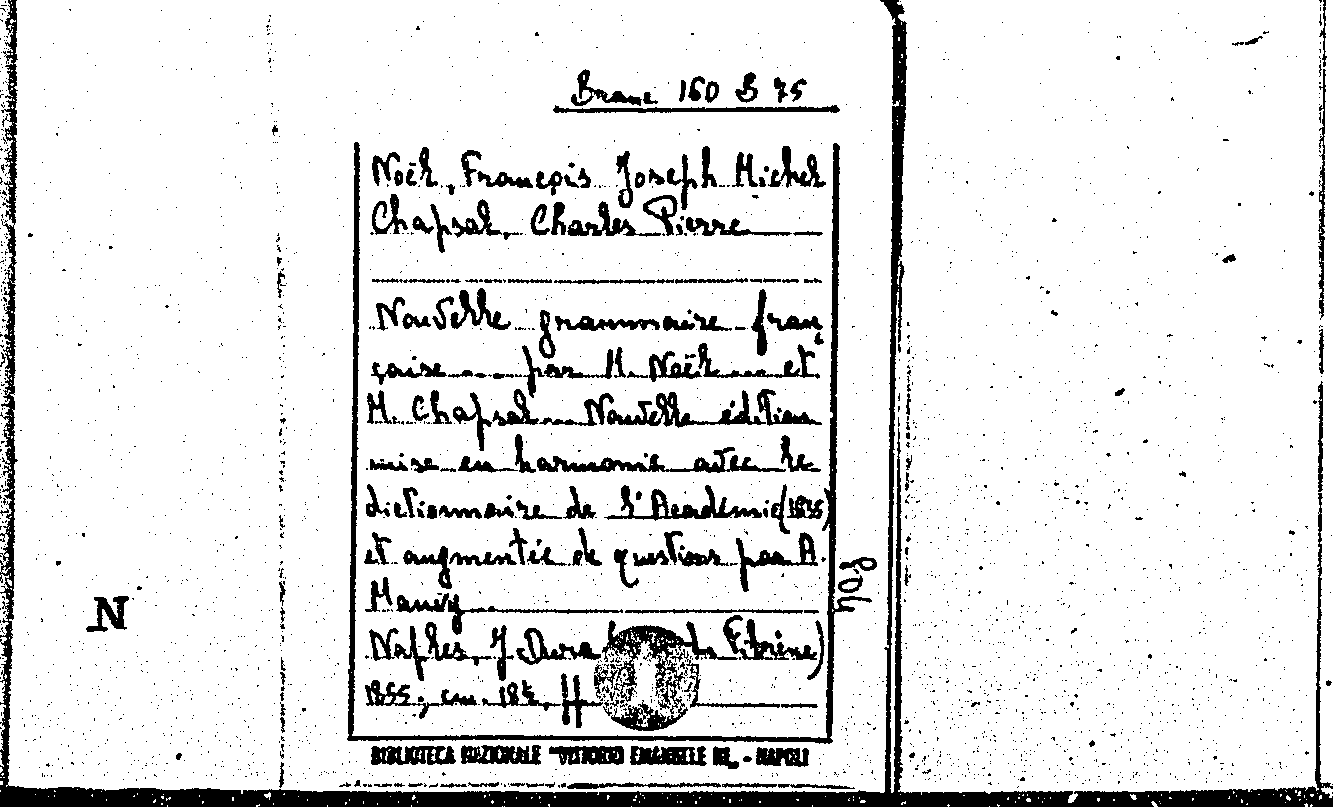 Branc 160 B 75
Noël, François Joseph Michel
Chapsal, Charles Pierre
Nouvelle grammaire fran
çaise ... par M. Noël ... et
M. Chapsal... Nouvelle édition
mise en harmonie avec le
dictionnaire de l'Académie (1835)
et augmentée de questions par A.
Naples, J. Dura
1855; cm. 18½.
BIBLIOTECA NAZIONALE "VITTORIO EMANUELE III„ - NAPOLI
N